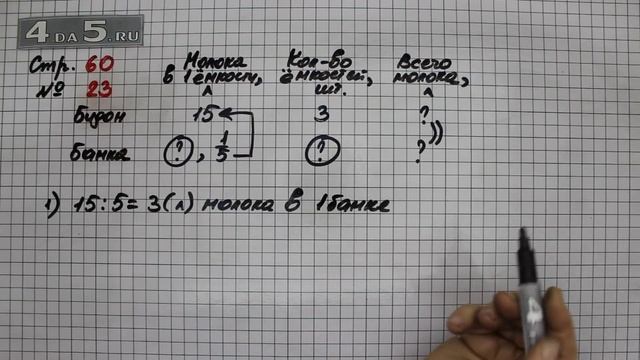 4DA5.RU
Стр. 60
№ 23
Молока в 1 ёмкости, л
Кол-во ёмкостей, шт.
Всего молока, л
Бидон 15 3 ?
Банка ?, 1/5 ? ?
1) 15:5=3(л) молока в 1 банке